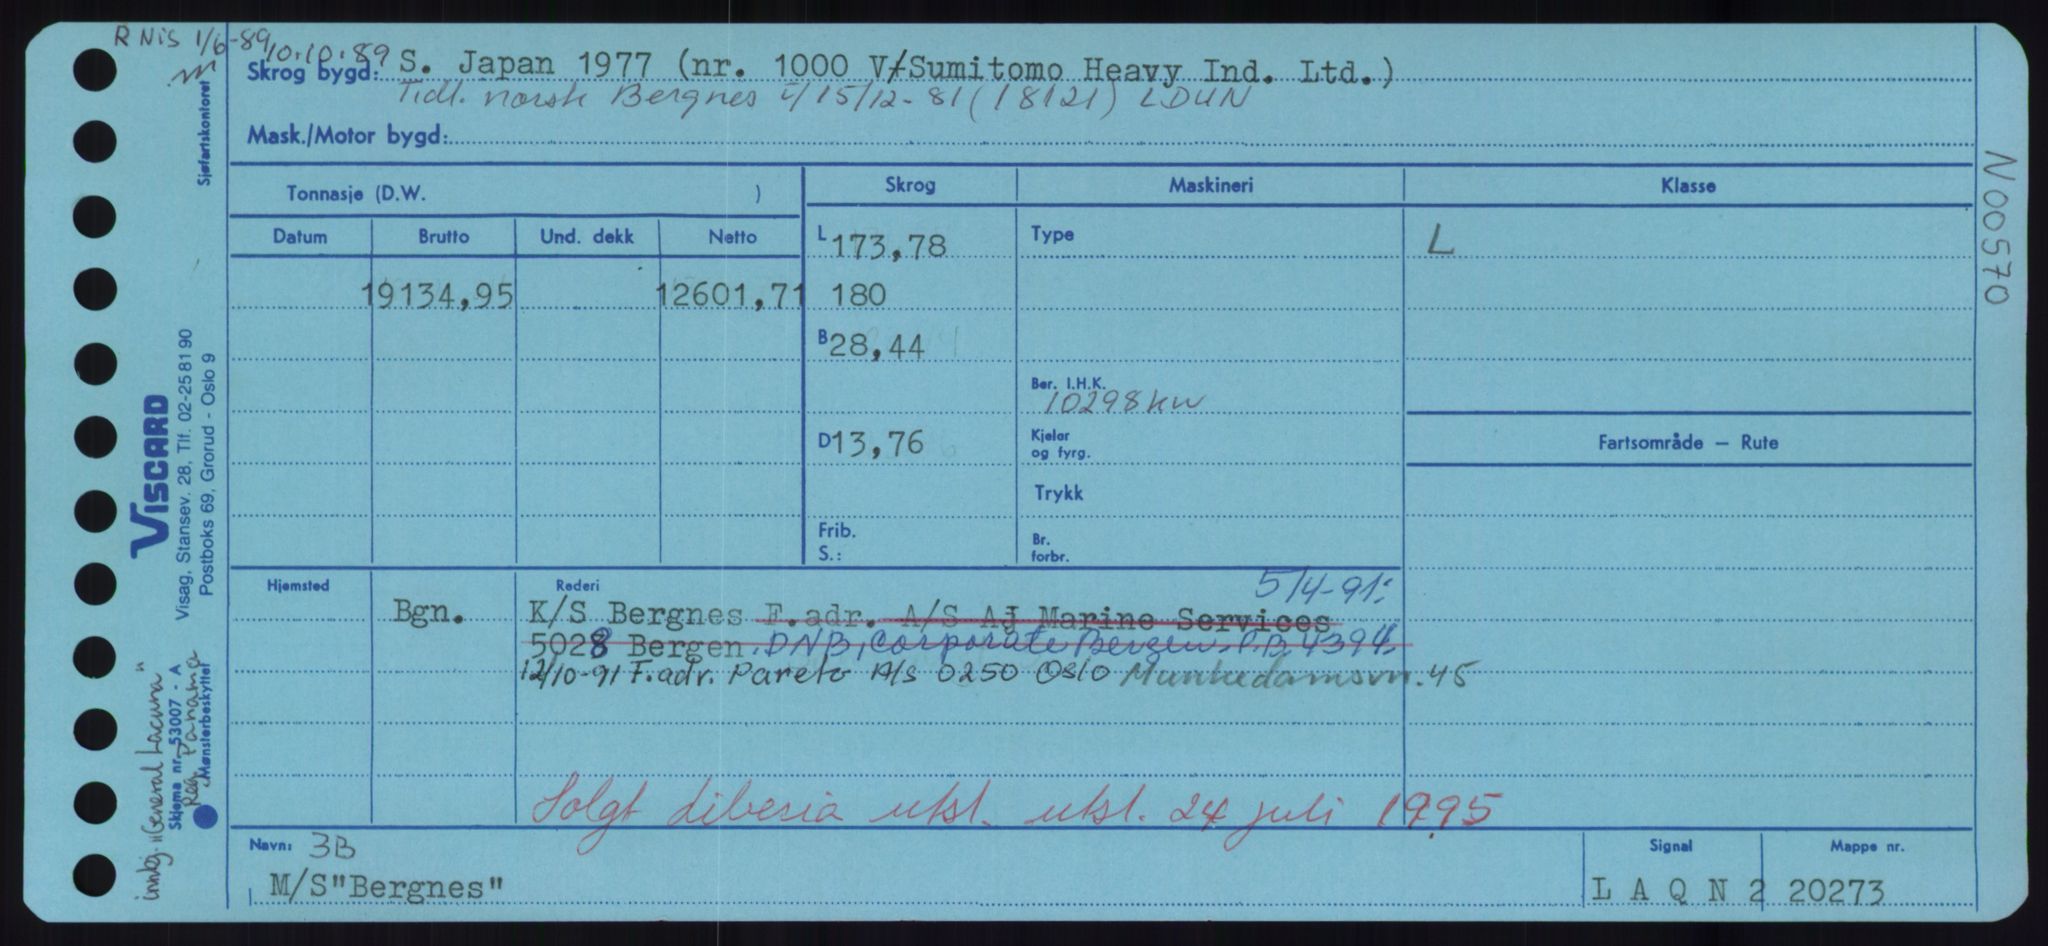 R NIS 1/6-89
10.10.89
Skrog bygd: S. Japan 1977 (nr. 1000 V/Sumitomo Heavy Ind. Ltd.)
Tidl. norsk Bergnes i/15/12-81 (18121) LDUN
Mask./Motor bygd:
Tonnasje (D.W. )
Skrog Maskineri Klasse
Datum Brutto Und. dekk Netto
L 173,78 Type L
19134,95 12601,71 180
B 28,44
Ber. I.H.K.
10298 kw
D 13,76 Kjelar
og fyrg.
Fartsområde — Rute
Trykk
Frib.
S.:
Br.
forbr.
Hjemsted Rederi 5/4-91:
Bgn. K/S Bergnes F.adr. A/S AJ Marine Services
5028 Bergen. DNB, Corporate Bergen, P.B. 4394.
12/10-91 F.adr. Pareto A/S 0250 Oslo Munkedamsvn. 45
Solgt Liberia utsl. utsl. 24 juli 1995
Navn: 3B
M/S"Bergnes"
Signal Mappe nr.
L A Q N 2 20273
N00570
Sjøfartskontoret
VISCARD
Visag, Stansev. 28, Tlf. 02-25 81 90
Postboks 69, Grorud - Oslo 9
Skjema nr. 53007 - A
Mønsterbeskyttet
"General Lacuna"
Reg. Panama